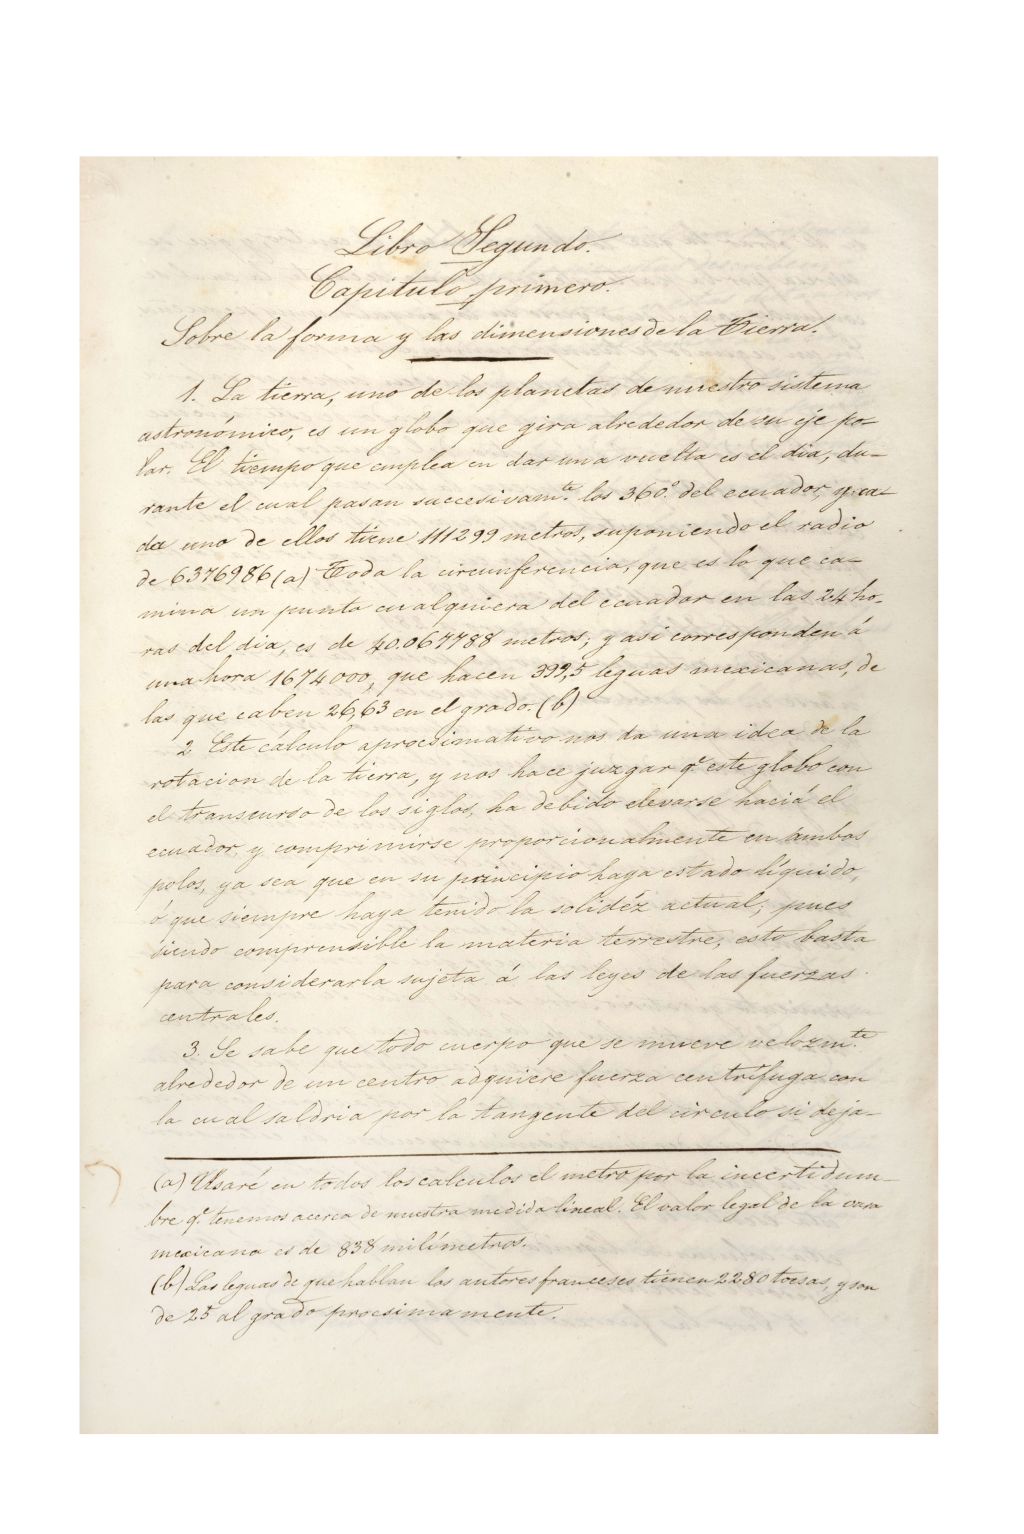 Libro Segundo.
Capitulo primero.
Sobre la forma y las dimensiones de la Tierra.
1. La tierra, uno de los planetas de nuestro sistema
astronómico, es un globo que gira alrededor de su eje po-
lar. El tiempo que emplea en dar una vuelta es el dia, du-
rante el cual pasan succesivam.te los 360.° del ecuador, y ca-
da uno de ellos tiene 111299 metros, suponiendo el radio
de 6376986 (a) Toda la circunferencia, que es lo que ca-
mina un punto cualquiera del ecuador en las 24 ho-
ras del dia, es de 40.067788 metros; y asi corresponden á
una hora 1674000, que hacen 399,5 leguas mexicanas, de
las que caben 26,63 en el grado. (b)
2 Este cálculo aprocsimativo nos da una idea de la
rotacion de la tierra, y nos hace juzgar q.e este globo con
el transcurso de los siglos, ha debido elevarse haciá el
ecuador, y comprimirse proporcionalmente en ámbos
polos, ya sea que en su principio haya estado líquido,
ó que siempre haya tenido la solidéz actual; pues
siendo comprensible la materia terrestre, esto basta
para considerarla sujeta á las leyes de las fuerzas
centrales.
3. Se sabe que todo cuerpo que se mueve velozm.te
alrededor de un centro adquiere fuerza centrífuga con
la cual saldria por la tangente del círculo si deja-
(a) Usaré en todos los calculos el metro por la incertidum-
bre q.e tenemos acerca de nuestra medida lineal. El valor legal de la vara
mexicana es de 838 milímetros.
(b) Las leguas de que hablan los autores franceses tienen 2280 toesas, y son
de 25 al grado procsimamente.